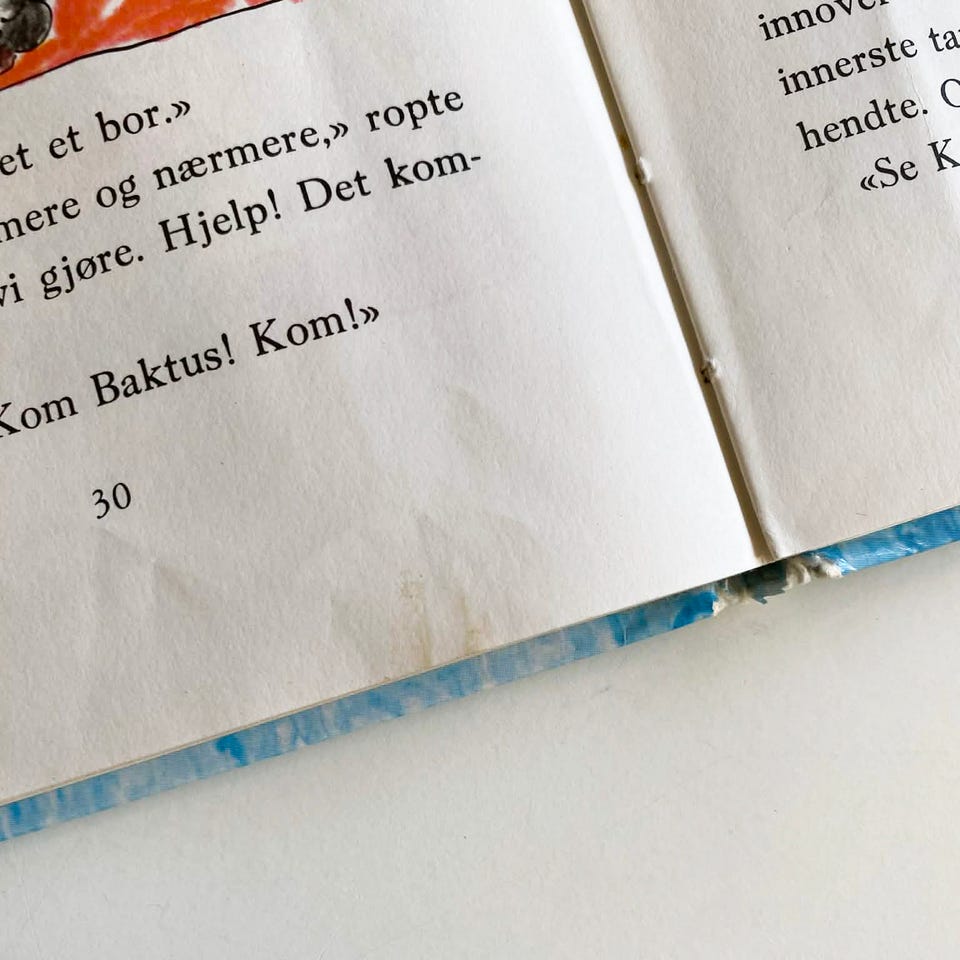 et et bor.»
mere og nærmere,» ropte
vi gjøre. Hjelp! Det kom-
Kom Baktus! Kom!»
30
innerste
hendte.
«Se K